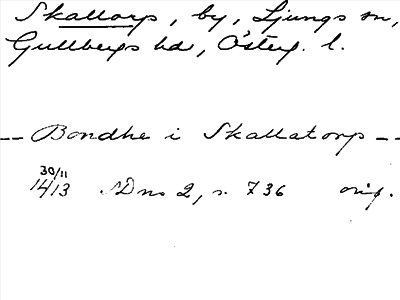 Skallorp, by, Ljungs sn,
Gullbergs hd, Österg. l.
-- Bondhe i Skallatorp --
30/11
1413 SDns 2, s. 736 orig.